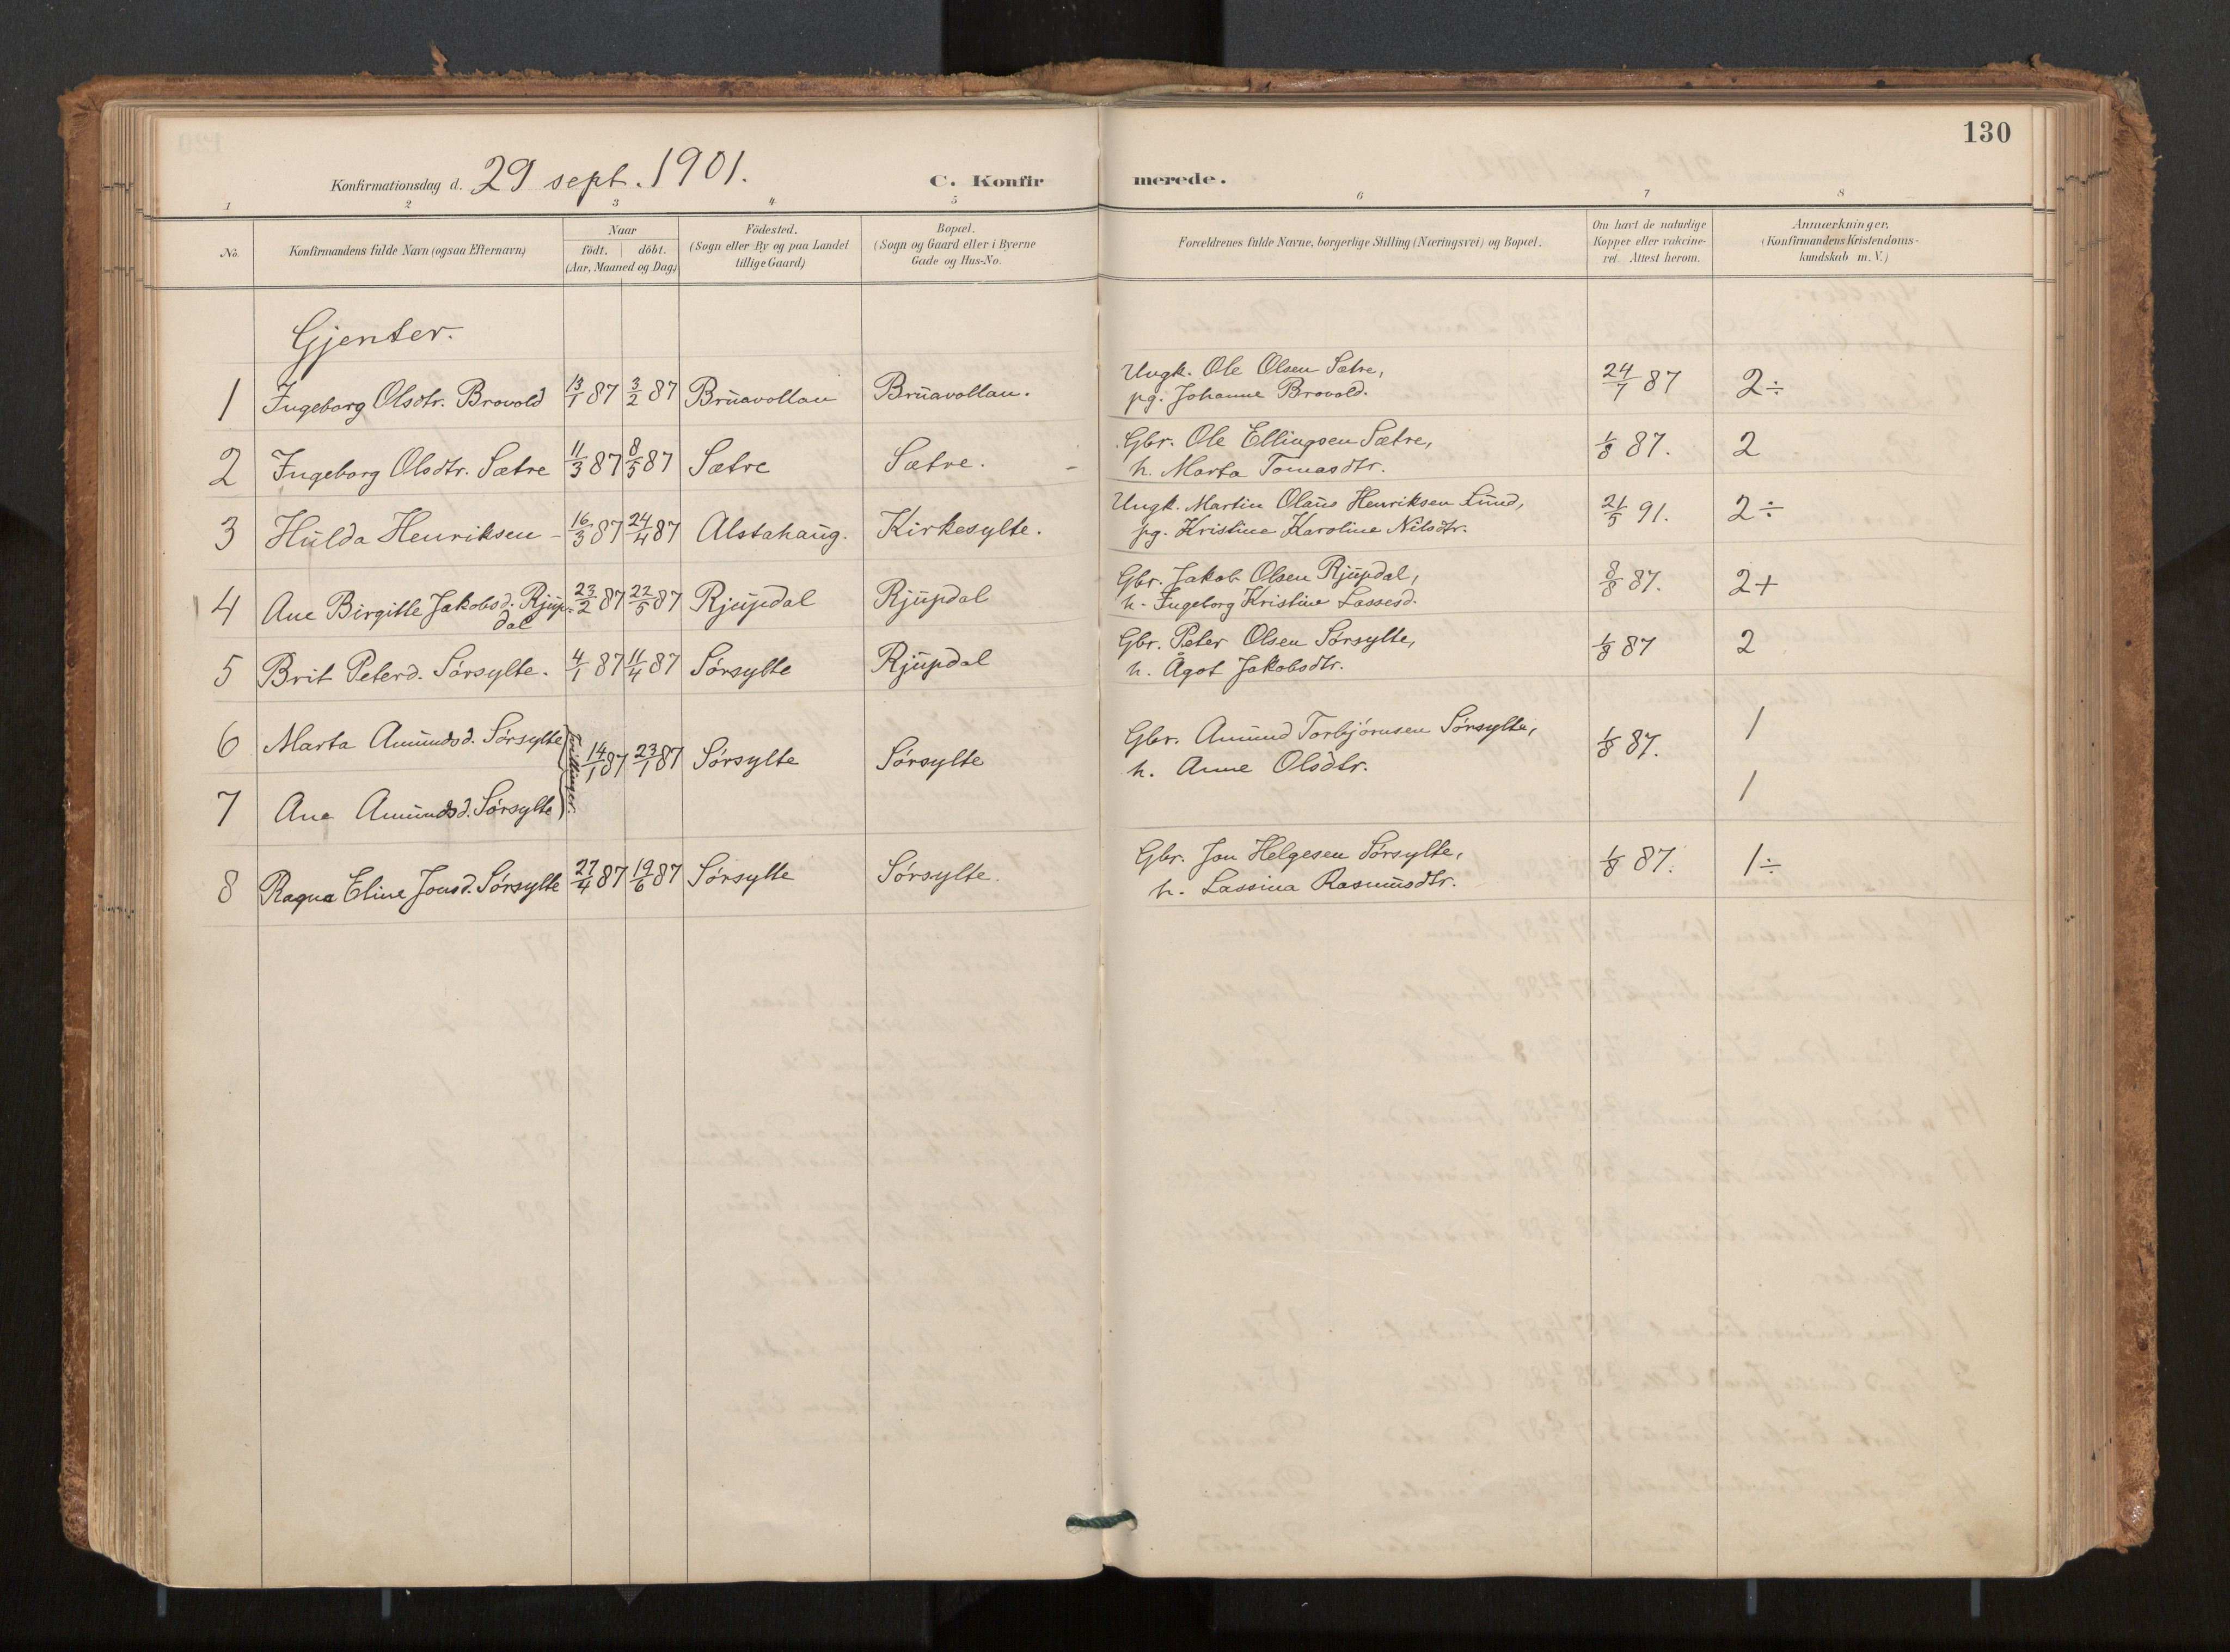 130
Konfirmationsdag d. 29 sept. 1901. C. Konfirmerede.
1 2 3 4 5 6 7 8
No. Konfirmandens fulde Navn (ogsaa Efternavn) Naar födt. döbt. (Aar, Maaned og Dag) Födested. (Sogn eller By og paa Landet tillige Gaard) Bopæl. (Sogn og Gaard eller i Byerne Gade og Hus-No. Forældrenes fulde Navne, borgerlige Stilling (Næringsvei) og Bopæl. Om havt de naturlige Kopper eller vakcineret. Attest herom. Anmærkninger. (Konfirmandens Kristendomskundskab m. V.)
Gjenter.
1 Ingeborg Olsdtr. Brovold 13/1 87 3/2 87 Bruavollan Bruavollan. Ungk. Ole Olsen Sætre, 24/7 87 2÷
pg. Johanne Brovold.
2 Ingeborg Olsdtr. Sætre 11/3 87 8/5 87 Sætre Sætre. Gbr. Ole Ellingsen Sætre, 1/8 87. 2
h. Marta Tomasdtr.
3 Hulda Henriksen - 16/3 87 24/4 87 Alstahaug. Kirkesylte. Ungk. Martin Olaus Henriksen Lund, 21/5 91. 2÷
pg. Kristine Karoline Nilsdtr.
4 Ane Birgitte Jakobsd. Rjup- 23/2 87 22/5 87 Rjupdal Rjupdal Gbr. Jakob Olsen Rjupdal, 8/8 87. 2+
dal h. Ingeborg Kristine Lassesd.
5 Brit Peterd. Sørsylte. 4/1 87 11/4 87 Sørsylte Rjupdal Gbr. Peter Olsen Sørsylte, 1/8 87 2
h. Ågot Jakobsdtr.
6 Marta Amundsd. Sørsylte Tvillinger. 14/1 87 23/1 87 Sørsylte Sørsylte Gbr. Amund Torbjørnsen Sørsylte, 1/8 87. 1
h. Anne Olsdtr.
7 Ane Amundsd. Sørsylte 1
8 Ragna Eline Jonsd. Sørsylte 27/4 87 19/6 87 Sørsylte Sørsylte. Gbr. Jon Helgesen Sørsylte, 1/8 87. 1÷
h. Lassina Rasmusdtr.